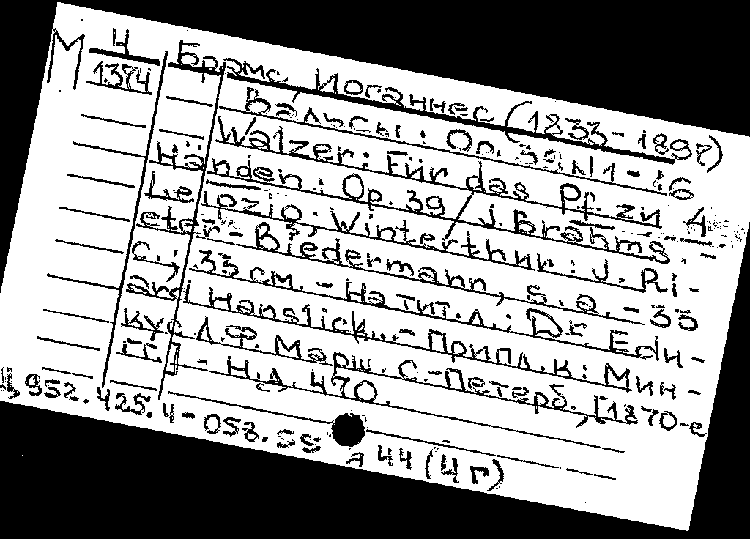 М Ч
1374
Брамс Иоганнес (1833-1897)
Вальсы: Op. 39 N1-16
Walzer: Für das Pf. zu 4
Händen: Op. 39 / J. Brahms. -
Leipzig; Winterthur: J. Ri-
eter-Biedermann, s. a. - 33
с.; 33 см. - На тит. л.: Dr Edu-
ard Hanslick... - Припл. к: Мин-
кус Л. Ф. Марш. С.-Петерб., [1870-е
гг.] - Н.д. 470.
Ц952.425.4-058.55 44 (4г)